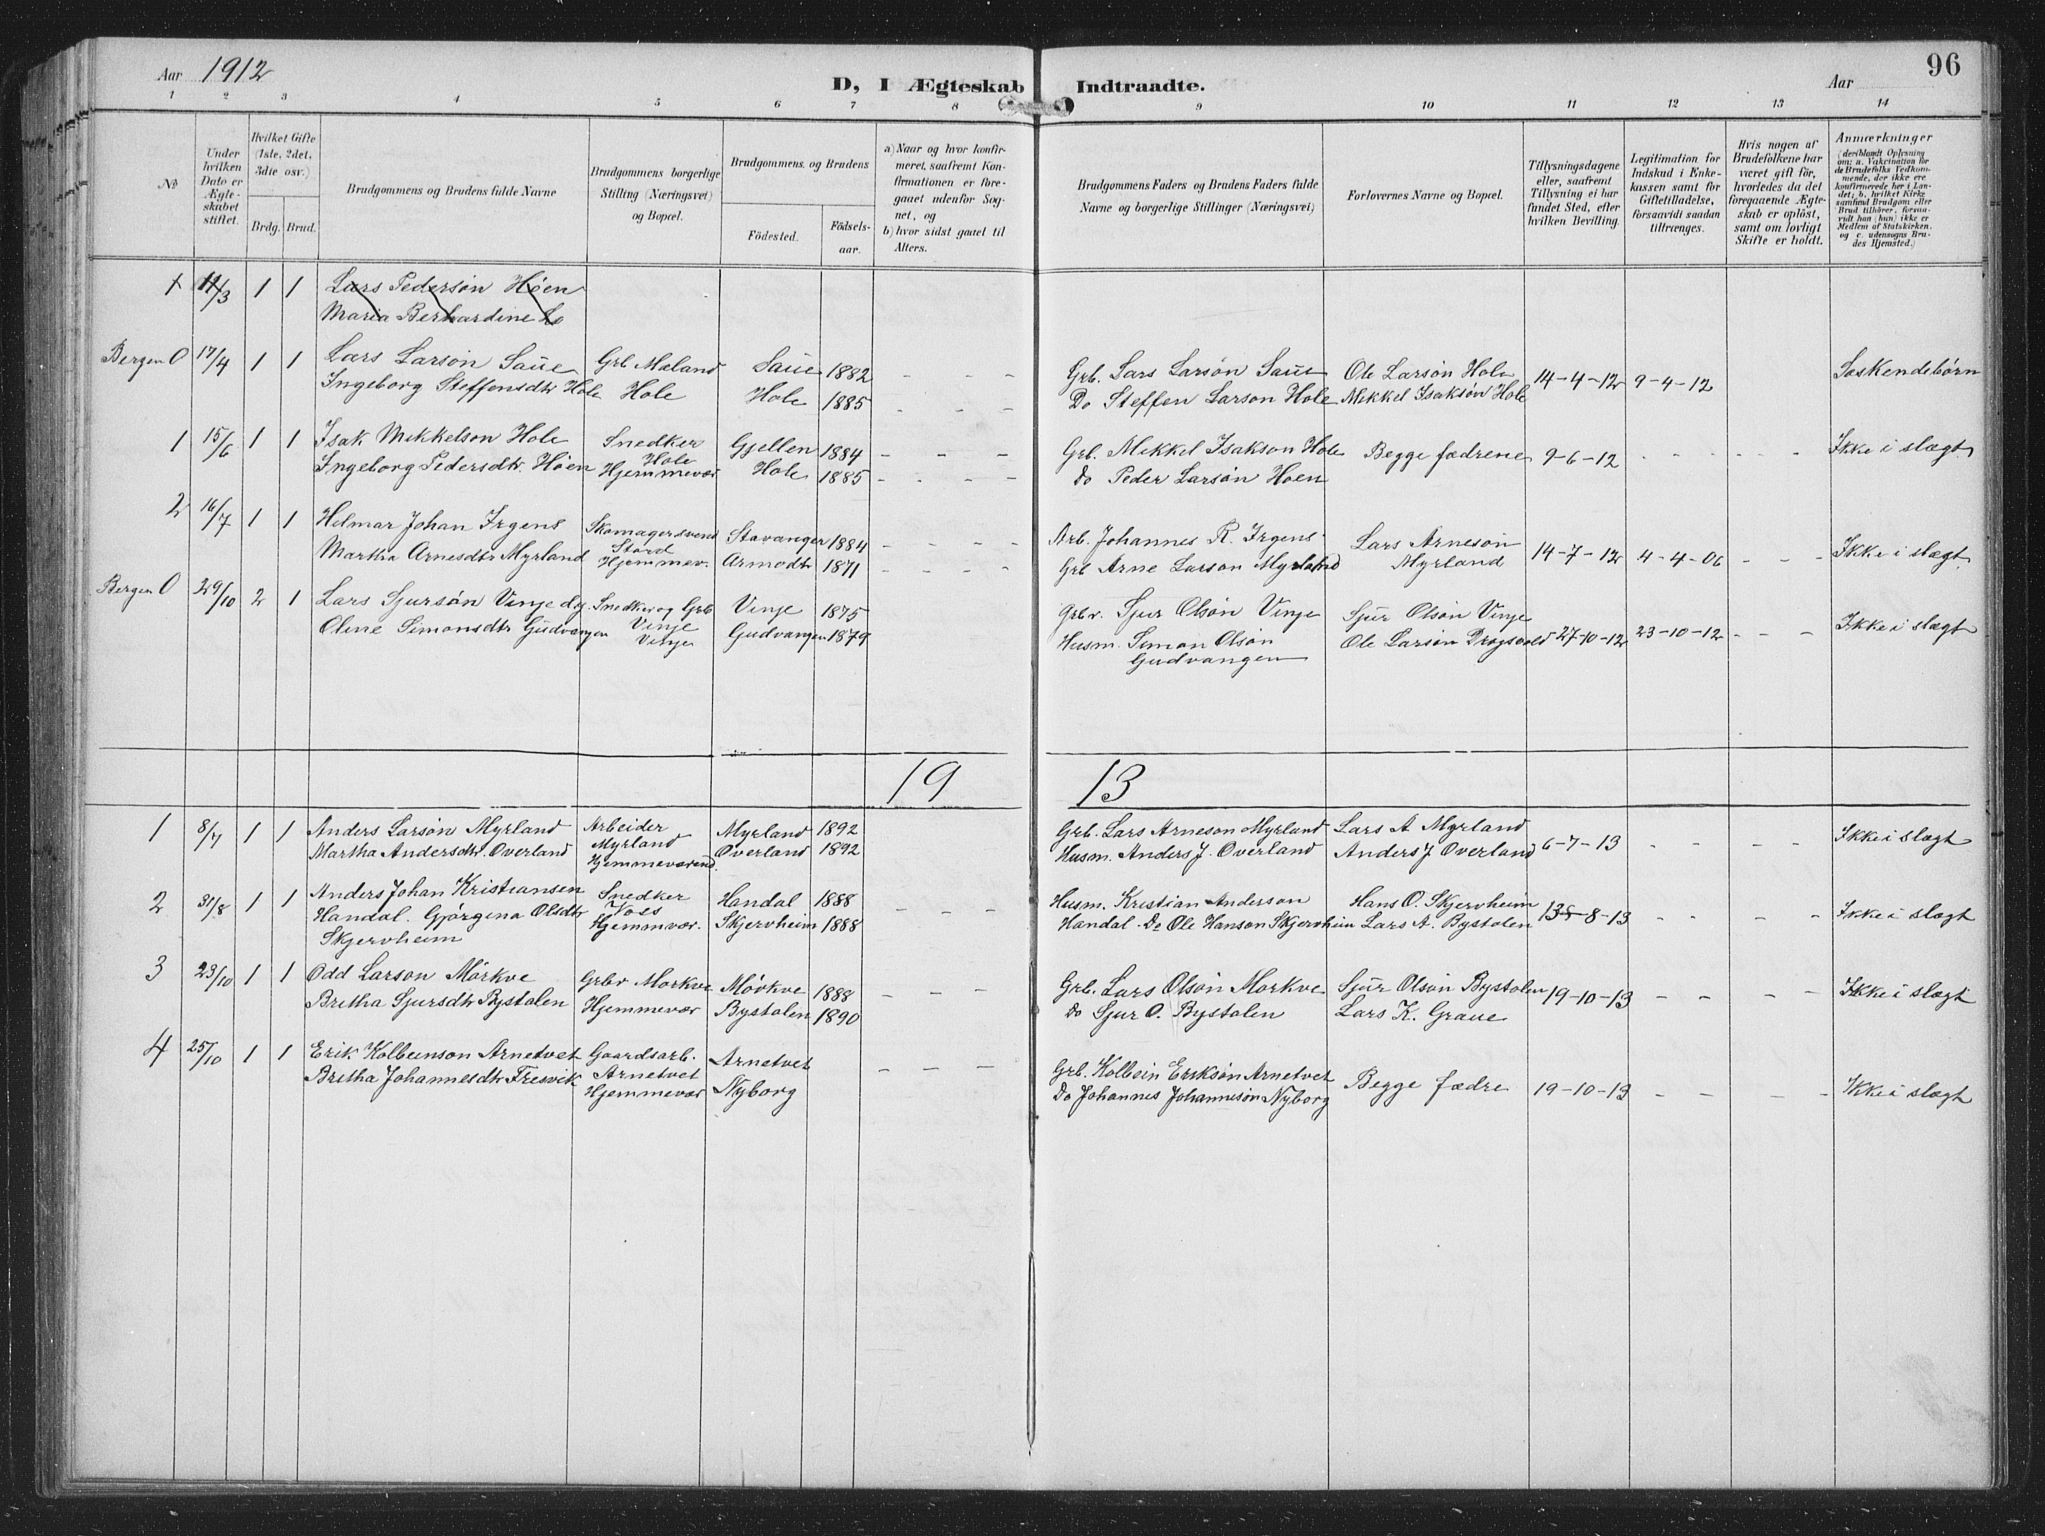 Aar 1912
D, I Ægteskab Indtraadte.
Aar
96
1 2 3 4 5 6 7 8 9 10 11 12 13 14
No
Under hvilken Dato er Ægteskabet stiftet.
Hvilket Gifte (1ste, 2det, 3die osv.)
Brdg. Brud.
Brudgommens og Brudens fulde Navne
Brudgommens borgerlige Stilling (Næringsvei) og Bopæl.
Brudgommens og Brudens
Födested.
Födselsaar.
a) Naar og hvor konfirmeret, saafremt Konfirmationen er foregaaet udenfor Sognet, og
b) hvor sidst gaaet til Alters.
Brudgommens Faders og Brudens Faders fulde Navne og borgerlige Stillinger (Næringsvei)
Forlovernes Navne og Bopæl.
Tillysningsdagene eller, saafremt Tillysning ei har fundet Sted, efter hvilken Bevilling.
Legitimation for Indskud i Enkekassen samt for Giftetilladelse, forsaavidt saadan tiltrænges.
Hvis nogen af Brudefolkene har været gift för, hvorledes da det foregaaende Ægteskab er oplöst, samt om lovligt Skifte er holdt.
Anmærkninger
(deriblandt Oplysning om: a. Vakcination for de Brudefolks Vedkommende, der ikke ere konfirmerede her i Landet; b. hvilket Kirkesamfund Brudgom eller Brud tilhörer, forsaavidt han (hun) ikke er Medlem af Statskirken. og c. udensogns Brudes Hjemsted.)
1 11/3 1 1 Lars Pedersøn Höen
Maria Berhardine Lo
Bergen O 17/4 1 1 Lars Larsøn Saue Grb Maland Saue 1882 - - - Grb. Lars Larsøn Saue Ole Larsøn Hole 14-4-12 9-4-12 Søskendebørn
Ingeborg Steffensdtr Hole Hole Hole 1885 - - - Do Steffen Larson Hole Mikkel Isaksøn Hole
1 15/6 1 1 Isak Mikkelson Hole Snedker Hole Gjellen 1884 - - - Grb. Mikkel Isakson Hole Begge fædrene 9-6-12 - - - - - Ikke i slægt
Ingeborg Pedersdtr. Höen Hjemmevær Hole 1885 - - - - Do Peder Larsøn Höen
2 16/7 1 1 Helmar Johan Irgens Skomagersvend Stord Stavanger 1884 - - - Arb. Johannes R. Irgens Lars Arnesøn Myrland 14-7-12 4-4-06 - - - Ikke i slægt
Martha Arnesdtr Myrland Hjemmev. Armodtr 1871 - - - Grb Arne Larson Myrland
Bergen O 29/10 2 1 Lars Sjursøn Vinje d.y. Snedker og Grb Vinje Vinje 1875 Grbr. Sjur Olsøn Vinje Sjur Olsøn Vinje 27-10-12 23-10-12 - - - Ikke i slægt
Oline Simonsdtr Gudvangen Vinje Gudvangen 1879 Husm. Simon Olson Gudvangen Ole Larsøn Drogsvold
19 13
1 8/7 1 1 Anders Larsøn Myrland Arbeider Myrland Myrland 1892 Grb. Lars Arneson Myrland Lars A Myrland 6-7-13 - - - - Ikke i slægt
Martha Andersdtr. Overland Hjemmeværend Overland 1892 Husm. Anders J. Overland Anders J Overland
2 31/8 1 1 Anders Johan Kristiansen Snedker Voss Handal 1888 - - - Husm. Kristian Anderson Hans O. Skjervheim -8-13 - - - - Ikke i slægt
Handal. Gjørgina Olsdtr Skjervheim Hjemmvær. Skjervheim 1888 Handal. Do Ole Hanson Skjervheim Lars A. Bystolen
3 23/10 1 1 Odd Larson Mörkve Grbr Morkve Mörkve 1888 - - - Grb. Lars Olsøn Morkve Sjur Olsøn Bystolen 19-10-13 - - - - Ikke i slægt
Britha Sjursdtr Bystolen Hjemmevær Bystolen 1890 Do Sjur O. Bystolen Lars K. Graue
4 25/10 1 1 Erik Kolbeinson Arnetvet Gaardsarb. Arnetvet Arnetvet - - - Grb. Kolbein Eriksøn Arnetvet Begge fædre 19-10-13 - - - - Ikke i slægt
Britha Johannesdtr Fresvik Hjemmevær Nyborg Do Johannes Johannesøn Nyborg